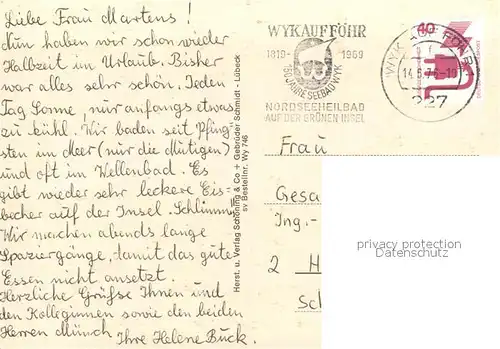 Liebe Frau Martens!
Nun haben wir schon wieder
Halbzeit im Urlaub. Bisher
war alles sehr schön. Jeden
Tag Sonne, nur anfangs etwas
zu kühl. Wir baden seit Pfing-
sten im Meer (nur die Mutigen)
und oft im Wellenbad. Es
gibt wieder sehr leckere Eis-
becher auf der Insel. Schlimm!
Wir machen abends lange
Spaziergänge, damit das gute
Essen nicht ansetzt.
Herzliche Grüße Ihnen und
den Kolleginnen sowie den beiden
Herren Münch Ihre Helene Buck.
Herst. u. Verlag Schöning & Co + Gebrüder Schmidt - Lübeck
sv Bestellnr. Wy 746
WYK AUF FÖHR
1819- 1969
150 JAHRE SEEBAD WYK
NORDSEEHEILBAD
AUF DER GRÜNEN INSEL
WYK AUF FÖHR
227
40
Frau
Gesa
Ing.-
2 H
Sc
privacy protection
Datenschutz